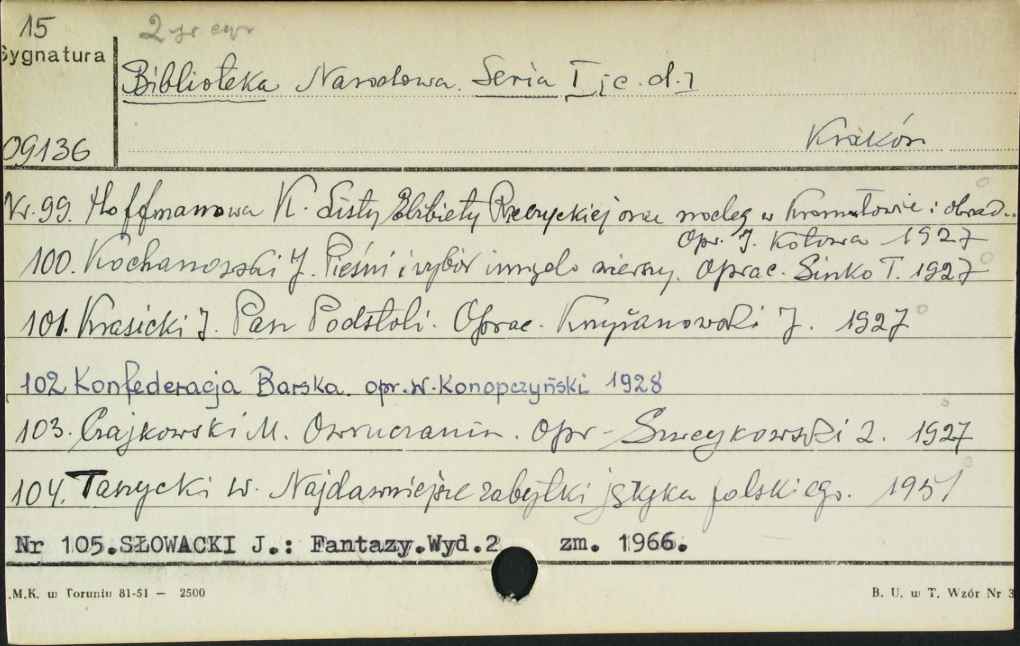 15
Sygnatura
Biblioteka Narodowa. Seria I [c. d.]
09136
Kraków
Nr. 99. Hoffmanowa K. Listy Elżbiety Rzeczyckiej oraz nocleg w
Opr. J. Kotowa 1927
100. Kochanowski J. Pieśni i wybór innych wierszy. Oprac. Sinko T. 1927
101. Krasicki J. Pan Podstoli. Oprac. Krzyżanowski J. 1927
102 Konfederacja Barska. opr. W. Konopczyński 1928
103. Czajkowski M. Owruczanin. Opr - Szweykowski Z. 1927
104. Taszycki W. Najdawniejsze zabytki języka polskiego. 1951
Nr 105. SŁOWACKI J.: Fantazy. Wyd. 2 zm. 1966.
.M.K. w Toruniu 81-51 — 2500
B. U. w T. Wzór Nr 3